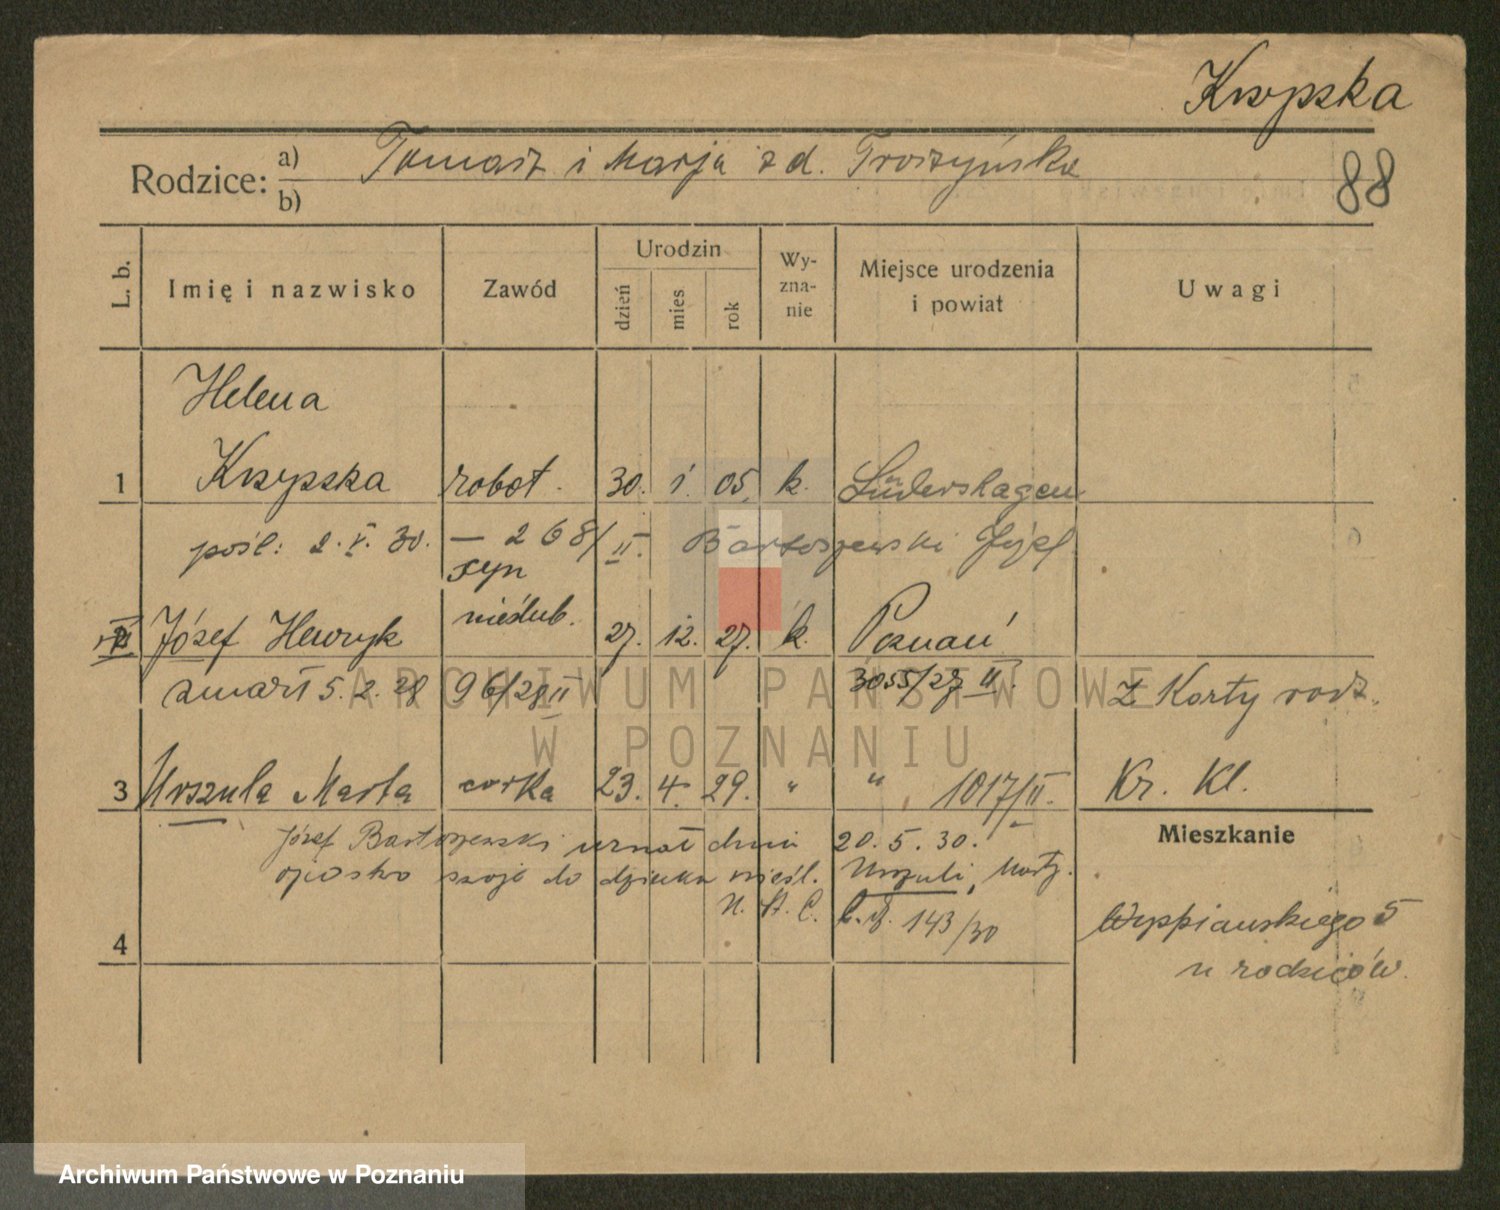 Krzypska
Rodzice: a) Tomasz i Marja z d. Troszyńska
b)
88
L. b.
Imię i nazwisko
Zawód
Urodzin
dzień
mies
rok
Wy-
zna-
nie
Miejsce urodzenia
i powiat
Uwagi
Helena
1 Krzypska robot. 30. 1. 05. k. Lüdershagen
pośl: 2. V. 30. — 268/II. Bartoszewski Józef
syn
nieślub.
Józef Henryk 27. 12. 27. k. Poznań
zmarł 5. 2. 28 96/28 II 3055/27 II. z Karty rodz.
3 Urszula Marta corka 23. 4. 29. " " 1017/II. Kr. Kl.
Mieszkanie
Józef Bartoszewski uznał dnia 20. 5. 30.
ojcostwo swoje do dziecka nieśl. Urszuli, Marty.
U. St. C. 143/30
4
Wyspiańskiego 5
u rodziców.
ARCHIWUM PAŃSTWOWE
W POZNANIU
Archiwum Państwowe w Poznaniu